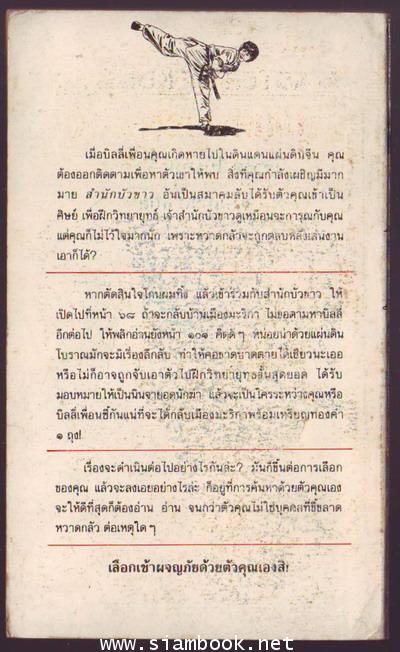 เมื่อบิลลี่เพื่อนคุณเกิดหายไปในดินแดนแผ่นดินจีน คุณ
ต้องออกติดตามเพื่อหาตัวเขาให้พบ สิ่งที่คุณกำลังเผชิญมีมาก
มาย สำนักบัวขาว อันเป็นสมาคมลับได้รับตัวคุณเข้าเป็น
ศิษย์ เพื่อฝึกวิทยายุทธ์ เจ้าสำนักบัวขาวดูเหมือนจะการุณกับคุณ
แต่คุณก็ไม่ไว้ใจมากนัก เพราะหวาดกลัวจะถูกตลบหลังเล่นงาน
เอาก็ได้?
หากตัดสินใจโกนผมทิ้ง แล้วเข้าร่วมกับสำนักบัวขาว ให้
เปิดไปที่หน้า ๖๘ ถ้าจะกลับบ้านเมืองมะริกา ไม่ขอตามหาบิลลี่
อีกต่อไป ให้พลิกอ่านยังหน้า ๑๐๑ คิดดีๆ หน่อยน่าด้วยแผ่นดิน
โบราณมักจะมีเรื่องลึกลับ ทำให้คอขาดบาดตายได้เชียวนะเออ
หรือไม่ก็อาจถูกจับเอาตัวไปฝึกวิทยายุทธชั้นสุดยอด ได้รับ
มอบหมายให้เป็นนินจายอดนักฆ่า แล้วจะเป็นใครระหว่างคุณหรือ
บิลลี่เพื่อนซี้กันแน่ที่จะได้กลับเมืองมะริกาพร้อมเหรียญทองคำ
๑ ถุง!
เรื่องจะดำเนินต่อไปอย่างไรกันล่ะ? มันก็ขึ้นต่อการเลือก
ของคุณ แล้วจะลงเอยอย่างไรล่ะ ก็อยู่ที่การค้นหาด้วยตัวคุณเอง
จะให้ดีที่สุดก็ต้องอ่าน อ่าน จนกว่าตัวคุณไม่ใช่บุคคลที่ขี้ขลาด
หวาดกลัว ต่อเหตุใดๆ
เลือกเข้าผจญภัยด้วยตัวคุณเองสิ!
www.siambook.net